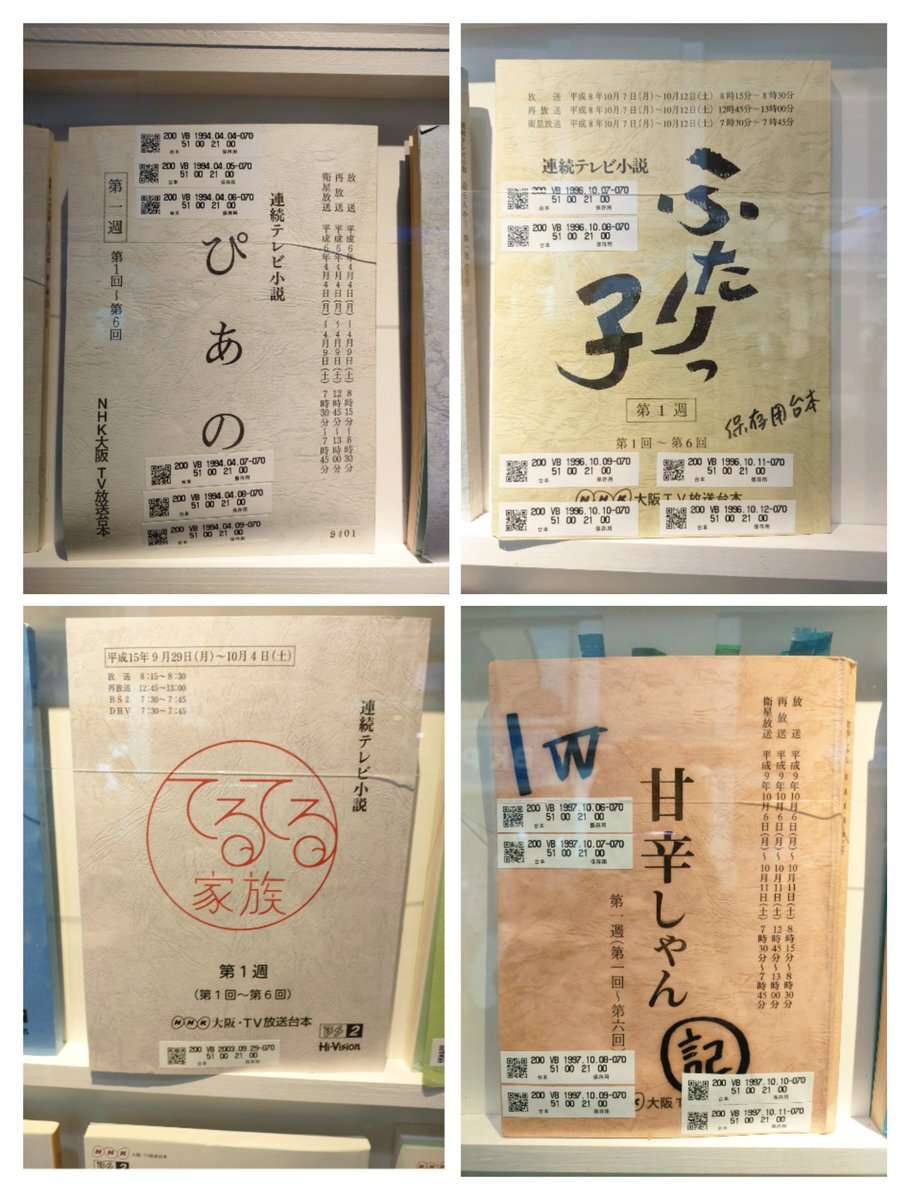 200 VB 1994.04.04-070
51 00 21 00
台本 保存用
200 VB 1994.04.05-070
51 00 21 00
台本 保存用
200 VB 1994.04.06-070
51 00 21 00
台本 保存用
放送 平成6年4月4日(月)～4月9日(土) 8時15分～8時30分
再放送 平成6年4月4日(月)～4月9日(土) 12時45分～13時00分
衛星放送 平成6年4月4日(月)～4月9日(土) 7時30分～7時45分
連続テレビ小説
ぴあの
第一週
第1回～第6回
NHK大阪 TV放送台本
200 VB 1994.04.07-070
51 00 21 00
台本 保存用
200 VB 1994.04.08-070
51 00 21 00
台本 保存用
200 VB 1994.04.09-070
51 00 21 00
台本 保存用
9401
放送 平成8年10月7日(月)～10月12日(土) 8時15分～8時30分
再放送 平成8年10月7日(月)～10月12日(土) 12時45分～13時00分
衛星放送 平成8年10月7日(月)～10月12日(土) 7時30分～7時45分
連続テレビ小説
200 VB 1996.10.07-070
51 00 21 00
台本 保存用
200 VB 1996.10.08-070
51 00 21 00
台本 保存用
ふたりっ
子
第1週
保存用台本
第1回～第6回
200 VB 1996.10.09-070
51 00 21 00
台本 保存用
200 VB 1996.10.11-070
51 00 21 00
台本 保存用
NHK大阪TV放送台本
200 VB 1996.10.10-070
51 00 21 00
台本 保存用
200 VB 1996.10.12-070
51 00 21 00
台本 保存用
平成15年9月29日(月)～10月4日(土)
放送 8:15～8:30
再放送 12:45～13:00
BS2 7:30～7:45
DHV 7:30～7:45
連続テレビ小説
てるてる
家族
第1週
(第1回～第6回)
NHK大阪・TV放送台本
BS2
Hi-Vision
200 VB 2003.09.29-070
51 00 21 00
台本 保存用
NHK 大阪・TV放送台本
1W
放送 平成9年10月6日(月)～10月11日(土) 8時15分～8時30分
再放送 平成9年10月6日(月)～10月11日(土) 12時45分～13時00分
衛星放送 平成9年10月6日(月)～10月11日(土) 7時30分～7時45分
200 VB 1997.10.06-070
51 00 21 00
台本 保存用
200 VB 1997.10.07-070
51 00 21 00
台本 保存用
甘辛しゃん
第一週(第一回～第六回)
記
200 VB 1997.10.08-070
51 00 21 00
台本 保存用
200 VB 1997.10.09-070
51 00 21 00
台本 保存用
大阪T
200 VB 1997.10.10-070
51 00 21 00
台本 保存用
200 VB 1997.10.11-070
51 00 21 00
台本 保存用